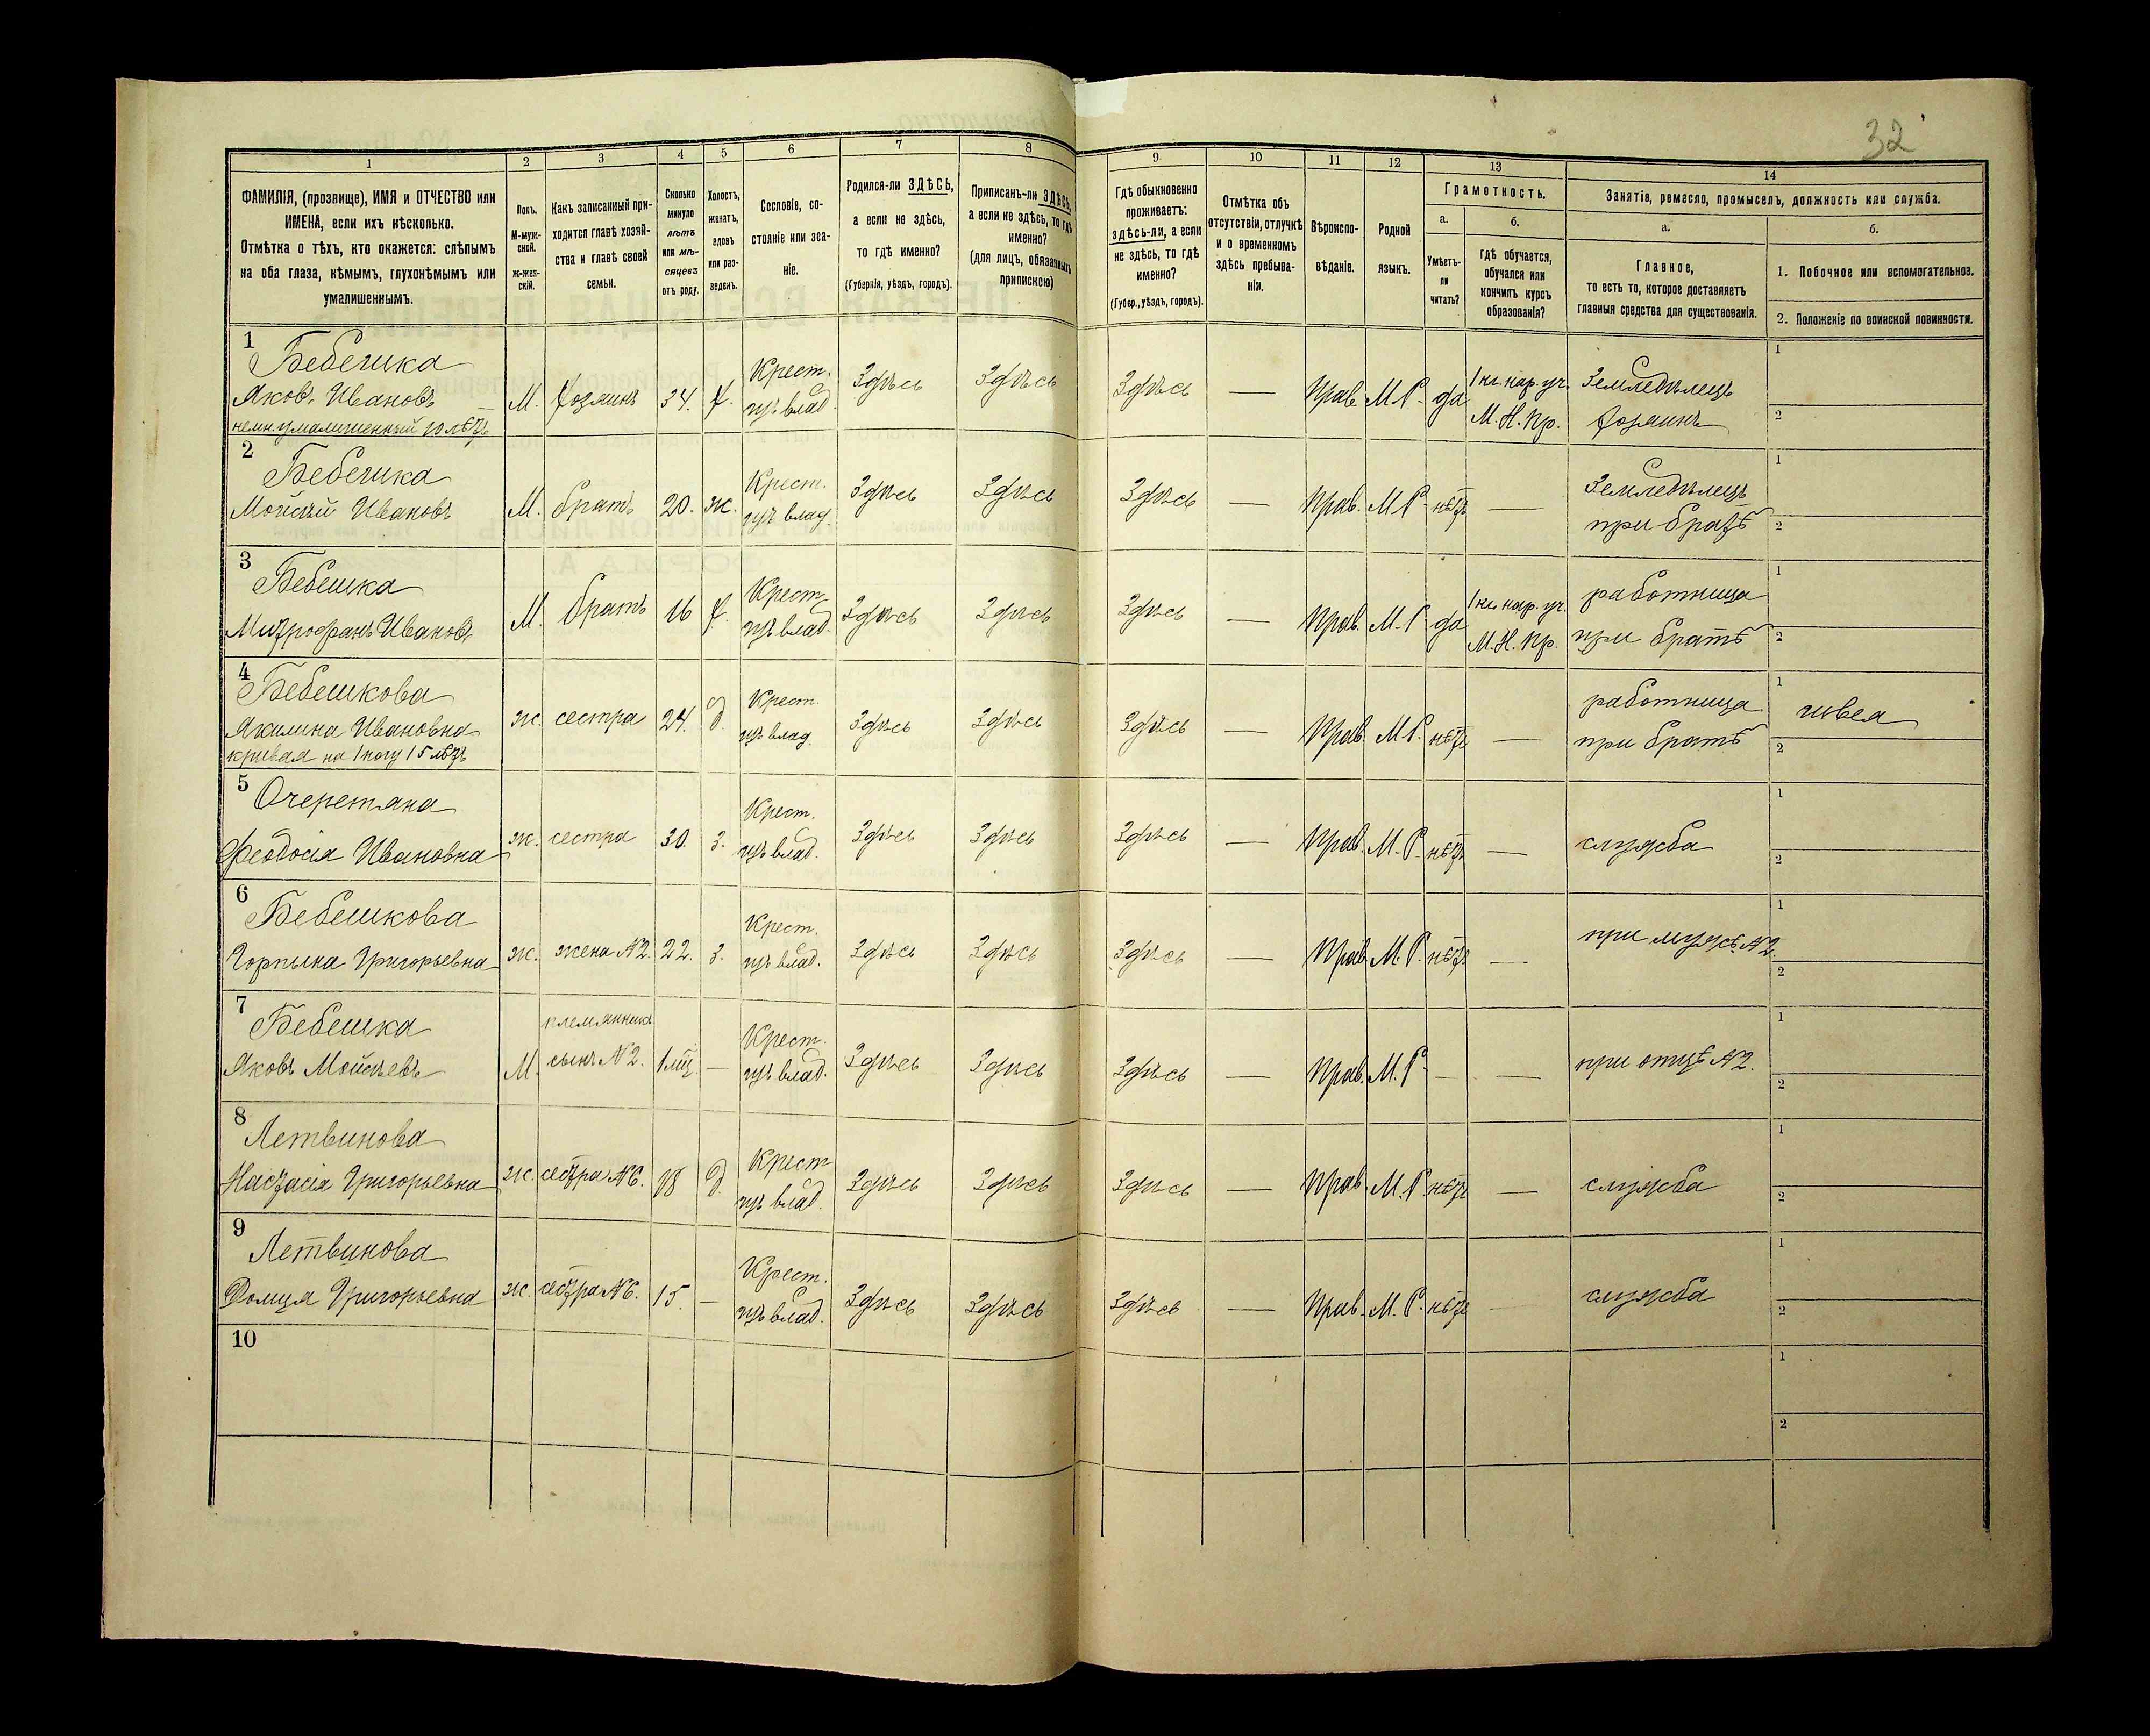 32
1 2 3 4 5 6 7 8 9 10 11 12 13 14
ФАМИЛІЯ, (прозвище), ИМЯ и ОТЧЕСТВО или
ИМЕНА, если ихъ нѣсколько.
Отмѣтка о тѣхъ, кто окажется: слѣпымъ
на оба глаза, нѣмымъ, глухонѣмымъ или
умалишеннымъ.
Полъ.
М-муж-
ской.
Ж-жен-
скій.
Какъ записанный при-
ходится главѣ хозяй-
ства и главѣ своей
семьи.
Сколько
минуло
лѣтъ
или мѣ-
сяцевъ
отъ роду.
Холостъ,
женатъ,
вдовъ
или раз-
веденъ.
Сословіе, со-
стояніе или зва-
ніе.
Родился-ли ЗДѢСЬ,
а если не здѣсь,
то гдѣ именно?
(Губернія, уѣздъ, городъ).
Приписанъ-ли ЗДѢСЬ,
а если не здѣсь, то гдѣ
именно?
(для лицъ, обязанныхъ
припискою)
Гдѣ обыкновенно
проживаетъ:
здѣсь-ли, а если
не здѣсь, то гдѣ
именно?
(Губер., уѣздъ, городъ).
Отмѣтка объ
отсутствіи, отлучкѣ
и о временномъ
здѣсь пребыва-
ніи.
Вѣроиспо-
вѣданіе.
Родной
языкъ.
Грамотность.
а.
Умѣетъ-
ли
читать?
б.
Гдѣ обучается,
обучался или
кончилъ курсъ
образованія?
Занятіе, ремесло, промыселъ, должность или служба.
а.
Главное,
то есть то, которое доставляетъ
главныя средства для существованія.
б.
1. Побочное или вспомогательное.
2. Положеніе по воинской повинности.
1
Бебешка
Яковъ Ивановъ
немн. умалишенный 10 лѣтъ
М. хозяинъ 34. х. Крест.
изъ влад. Здѣсь Здѣсь Здѣсь — Прав. М.Р. да 1 кл. нар. уч.
М. Н. Пр. Земледѣлецъ
хозяинъ 1
2
2
Бебешка
Мойсѣй Ивановъ
М. братъ 20. ж. Крест.
изъ влад. Здѣсь Здѣсь Здѣсь — Прав. М.Р. нѣтъ — Земледѣлецъ
при братѣ 1
2
3
Бебешка
Митрофанъ Ивановъ
М. братъ 16 х. Крест.
изъ влад. Здѣсь Здѣсь Здѣсь — Прав. М.Р да 1 кл. нар. уч.
М. Н. Пр. работница
при братѣ 1
2
4
Бебешкова
Акилина Ивановна
кривая на 1 ногу 15 лѣтъ
ж. сестра 24. д. Крест.
изъ влад. Здѣсь Здѣсь Здѣсь — Прав. М.Р. нѣтъ — работница
при братѣ 1 швея
2
5
Очеретяна
Феодосія Ивановна
ж. сестра 30. з. Крест.
изъ влад. Здѣсь Здѣсь Здѣсь — Прав. М.Р. нѣтъ — служба 1
2
6
Бебешкова
Горпына Григорьевна
ж. жена №2. 22. з. Крест.
изъ влад. Здѣсь Здѣсь Здѣсь — Прав М.Р. нѣтъ — при мужѣ №2. 1
2
7
Бебешка
Яковъ Мойсѣевъ
М. племянникъ
сынъ №2. 1 мц. — Крест.
изъ влад. Здѣсь Здѣсь Здѣсь — Прав. М.Р. — — при отцѣ №2. 1
2
8
Летвинова
Настасія Григорьевна
ж. сестра №6. 18 д. Крест
изъ влад. Здѣсь Здѣсь Здѣсь — Прав. М.Р. нѣтъ — служба 1
2
9
Летвинова
Домця Григорьевна
ж. сестра №6. 15. — Крест.
изъ влад. Здѣсь Здѣсь Здѣсь — Прав. М.Р. нѣтъ — служба 1
2
10
1
2